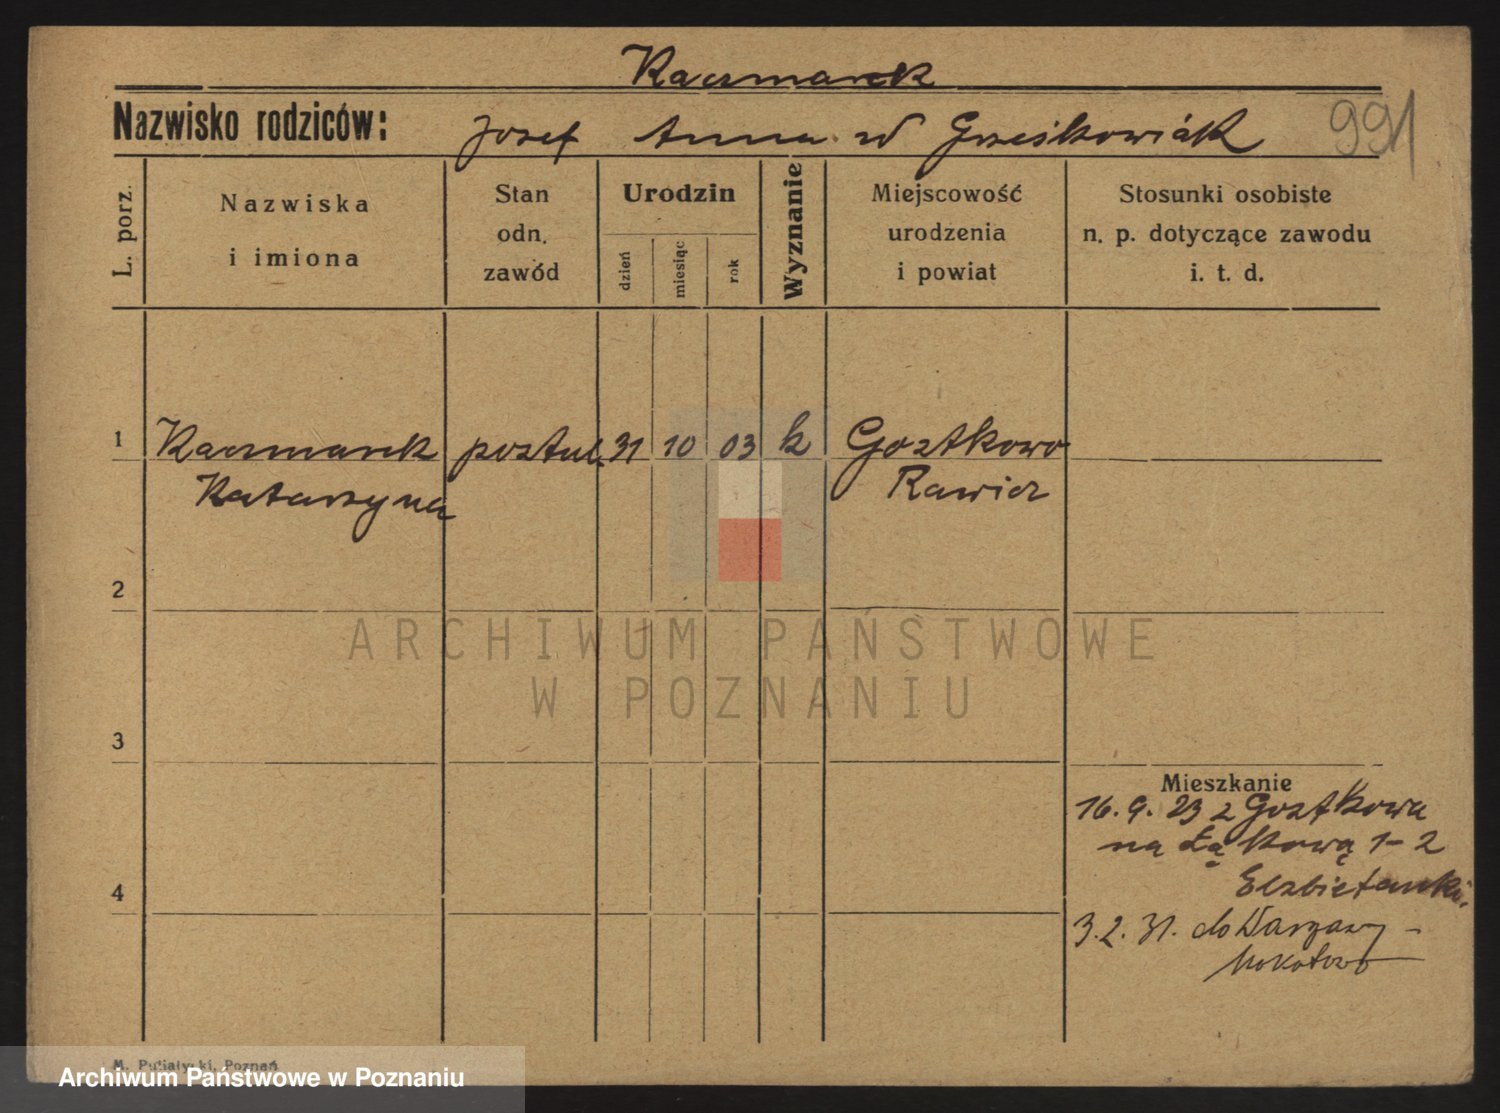 Kaczmarek
Nazwisko rodziców: Józef Anna w Grześkowiak 991
L. porz.
Nazwiska
i imiona
Stan
odn.
zawód
Urodzin
dzień
miesiąc
rok
Wyznanie
Miejscowość
urodzenia
i powiat
Stosunki osobiste
n. p. dotyczące zawodu
i. t. d.
1 Kaczmarek postul. 31 10 03 k Gostkowo
Katarzyna Rawicz
2
ARCHIWUM PAŃSTWOWE
W POZNANIU
3
Mieszkanie
16. 9. 23 z Gostkowa
na Łąkową 1-2
Elżbietanki.
4
3. 2. 31. do Warszawy -
Mokotowo
M. Putiatycki, Poznań
Archiwum Państwowe w Poznaniu